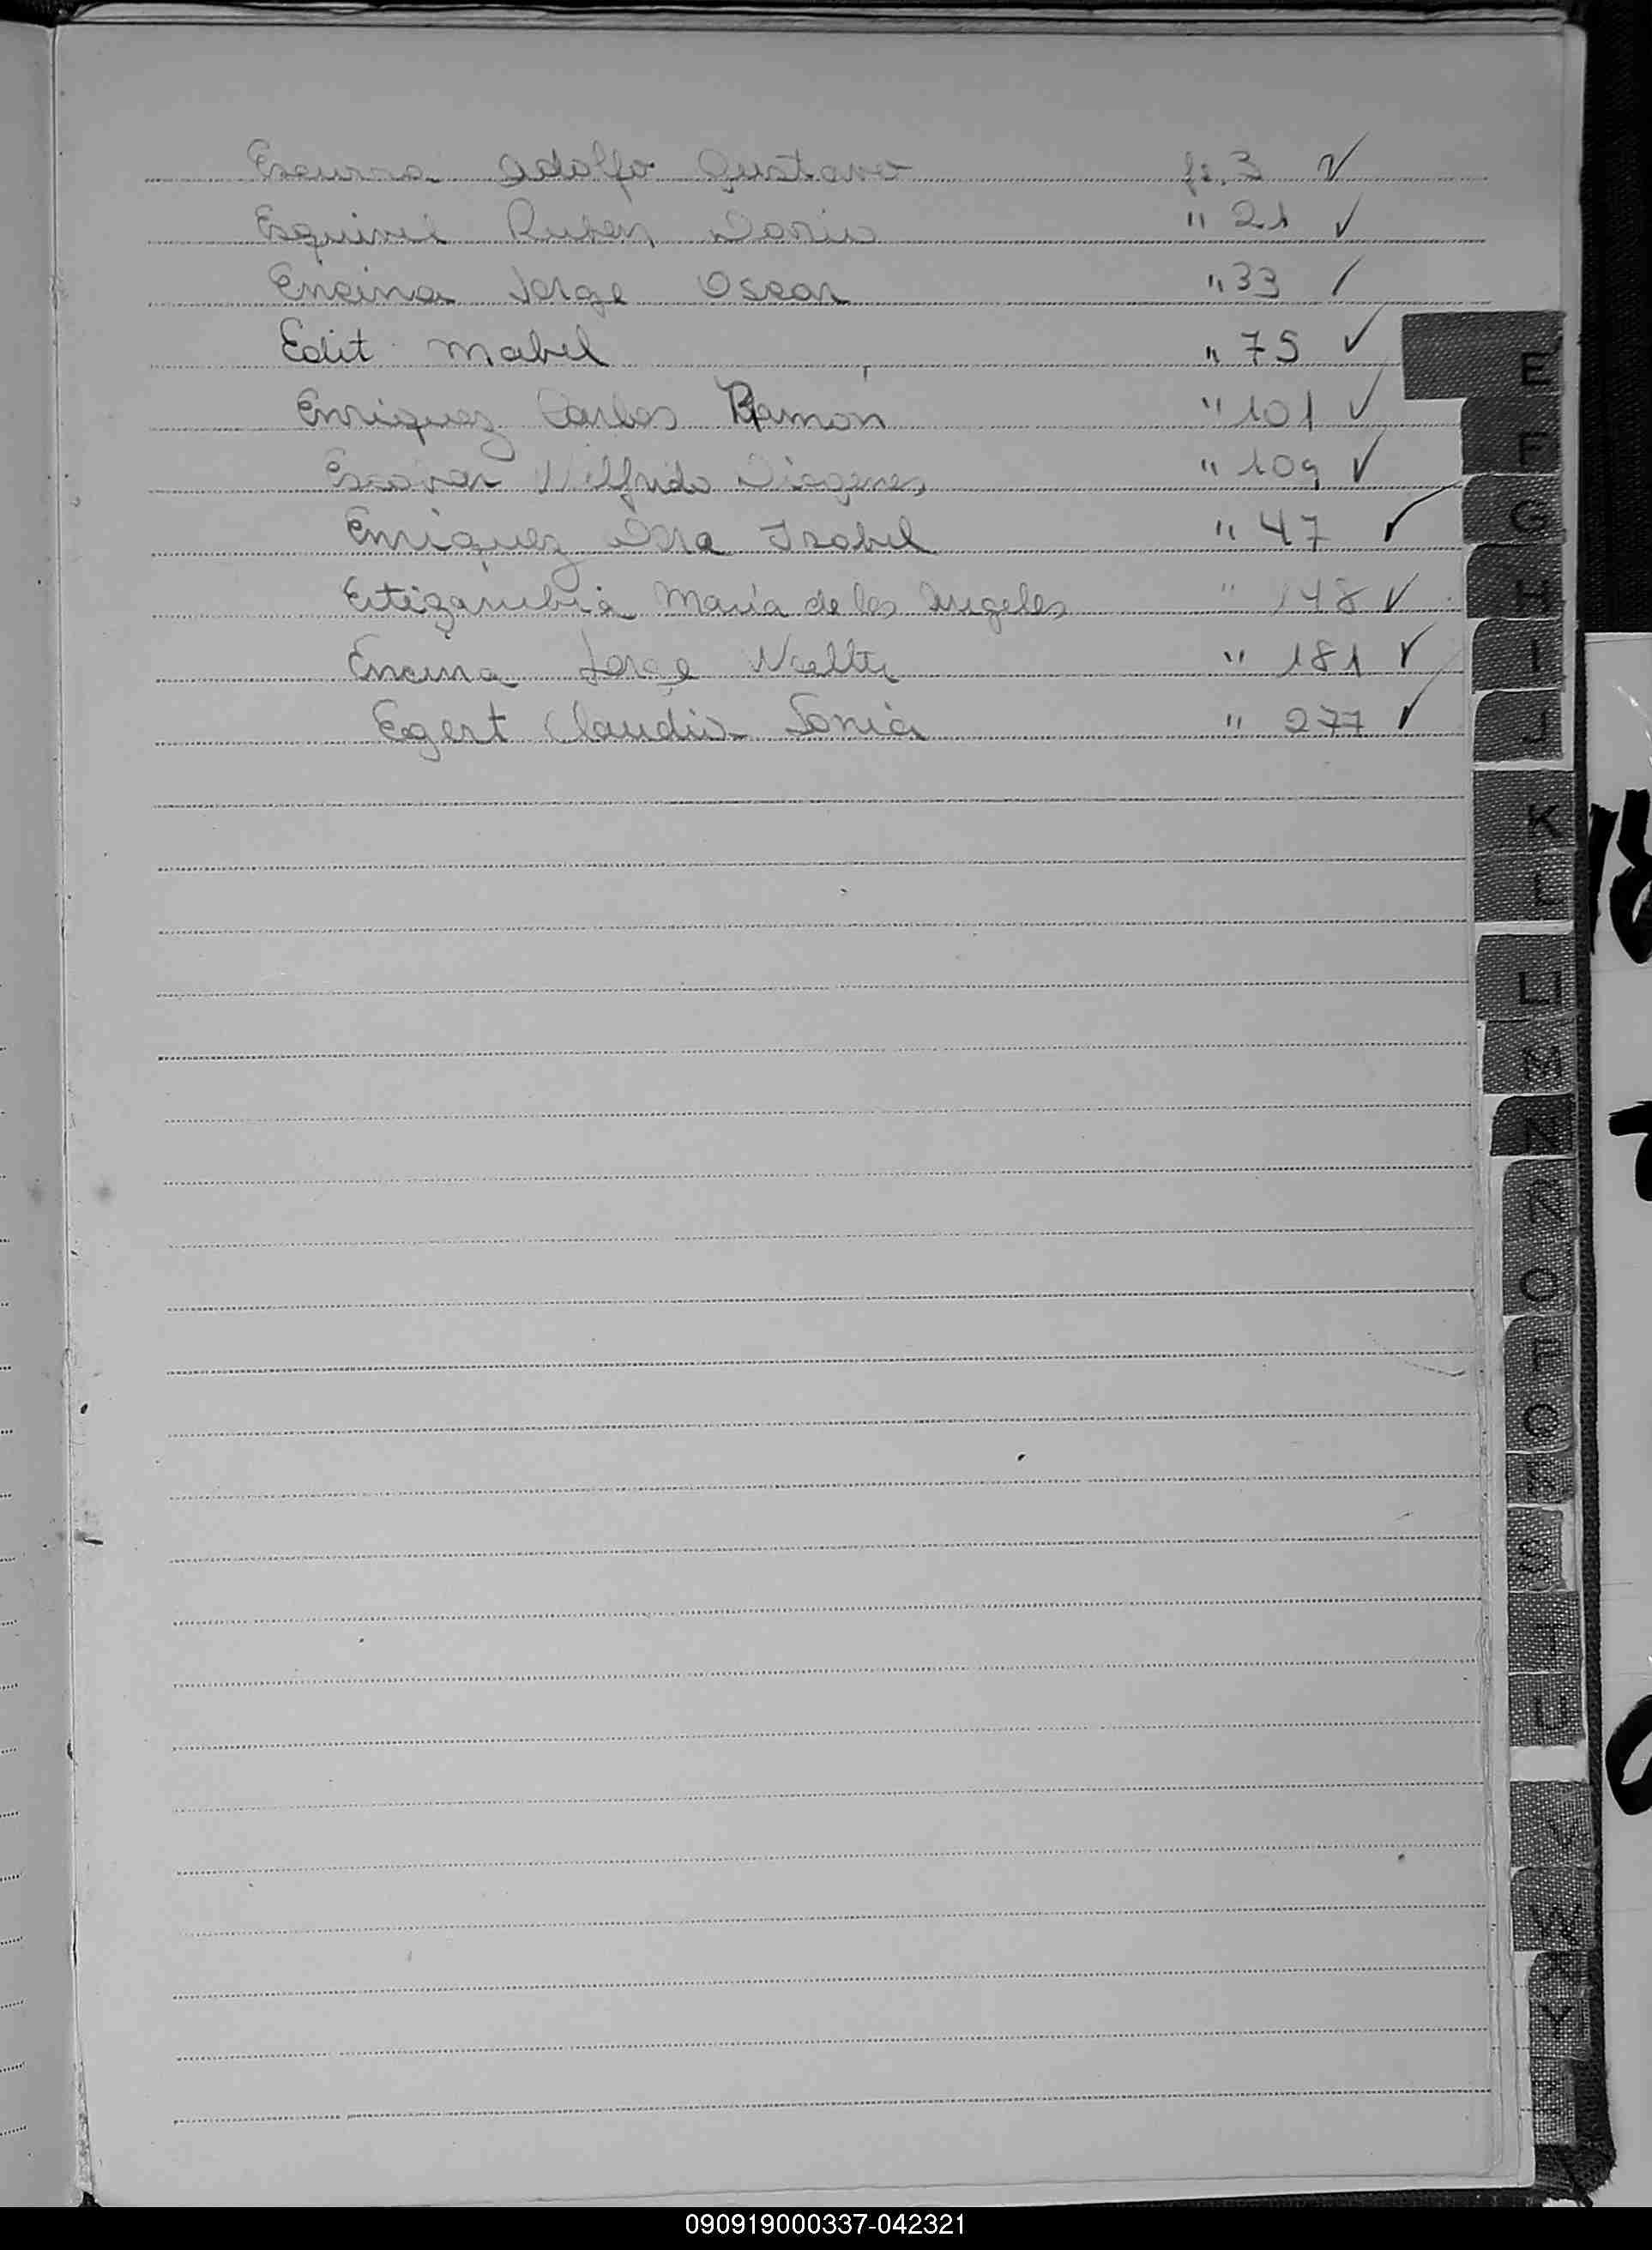 Escurra Adolfo Gustavo fs. 3 ✓
Esquivel Ruben Dario " 21 ✓
Encina Jorge Oscar " 33 ✓
Edit Mabel " 75 ✓
Enriquez Carlos Ramón " 101 ✓
Escovar Wilfrido Diogenes " 109 ✓
Enriquez Dora Isabel " 47 ✓
María de los Angeles " 148 ✓
Encina Jorge " 181 ✓
Egert Claudia Sonia " 277 ✓
E
F
G
H
I
J
K
L
LL
M
N
Ñ
O
P
Q
R
S
T
U
V
W
X
Y
Z
090919000337-042321